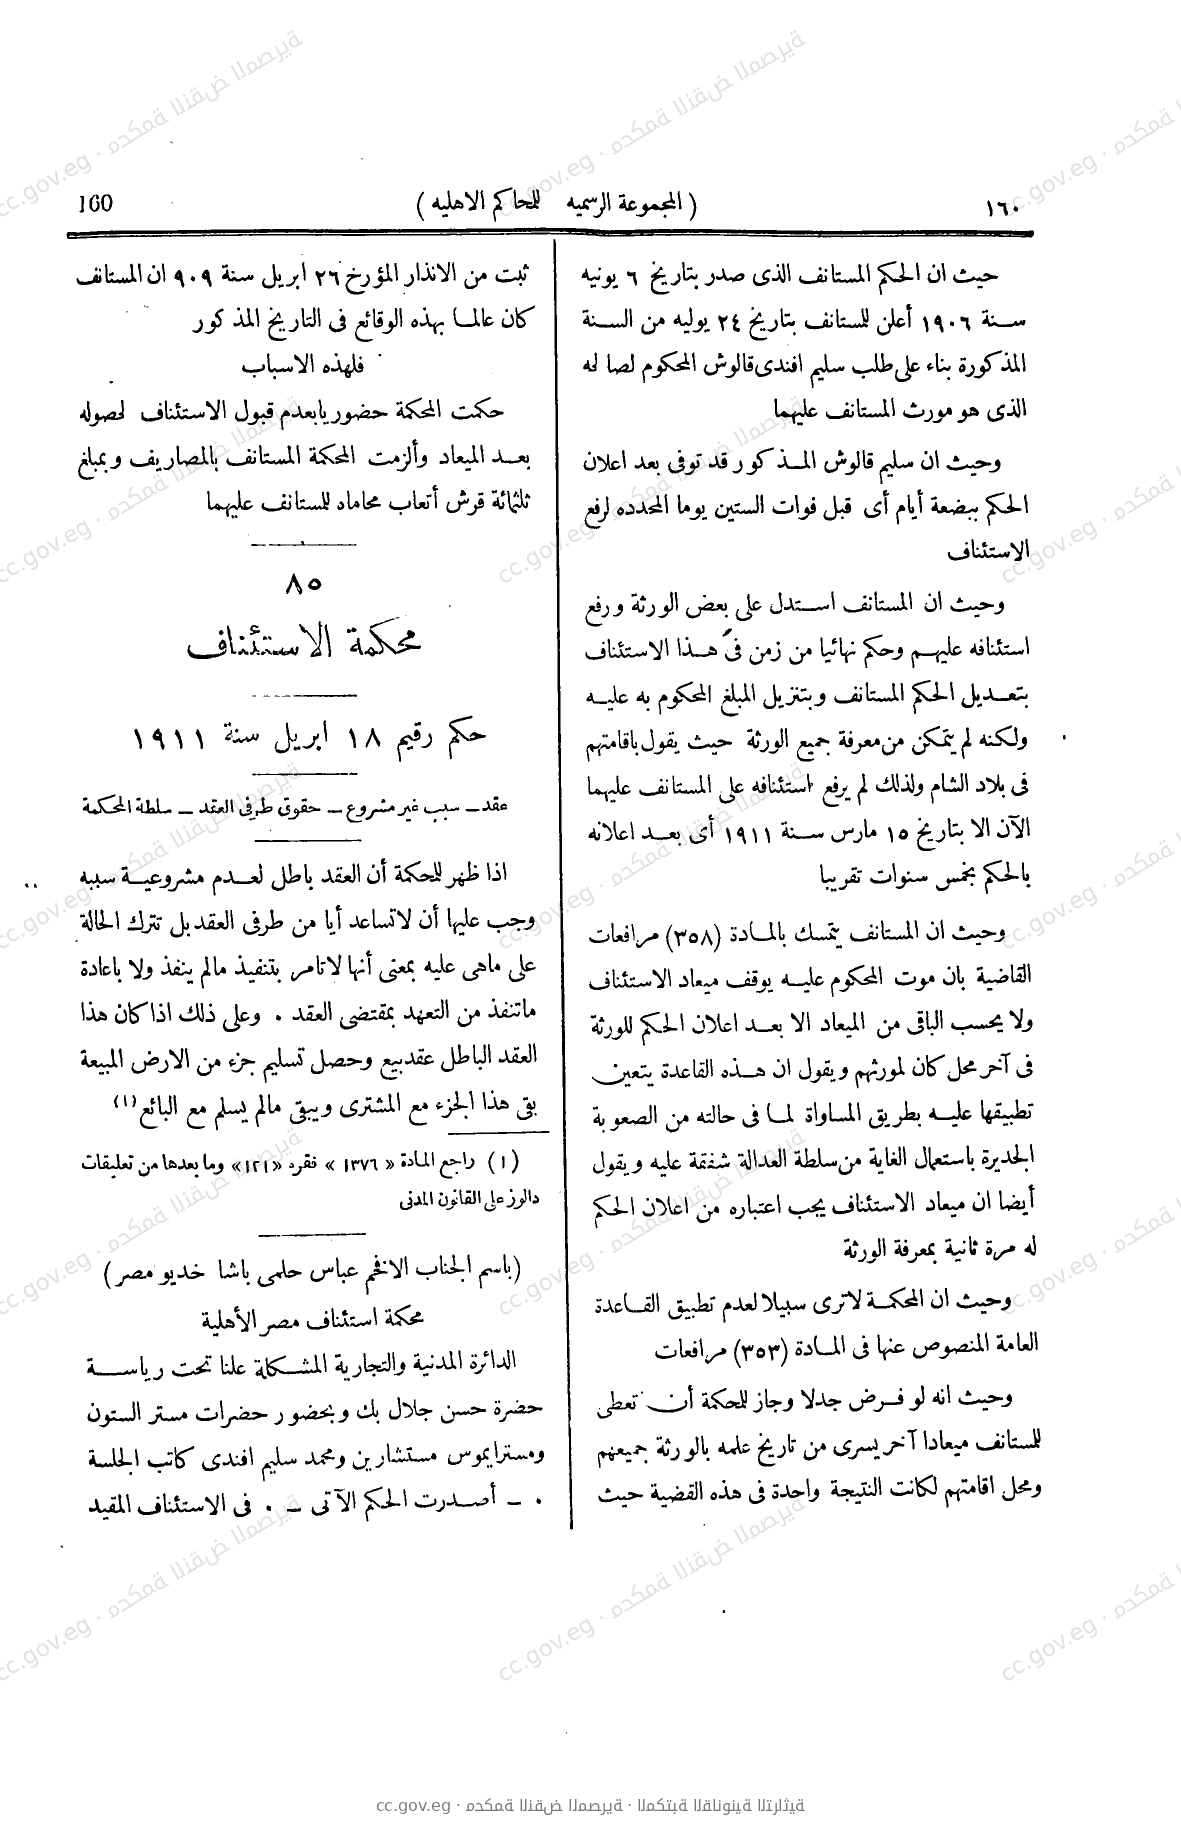 ١٦٠
( المجموعة الرسميه للمحاكم الاهليه )
160
حيث ان الحكم المستانف الذى صدر بتاريخ ٦ يونيه
سنة ١٩٠٦ أعلن للمستانف بتاريخ ٢٤ يوليه من السنة
المذكورة بناء على طلب سليم افندى قالوش المحكوم لصالحه
الذى هو مورث المستانف عليهما
وحيث ان سليم قالوش المذكور قد توفى بعد اعلان
الحكم ببضعة أيام أى قبل فوات الستين يوما المحدده لرفع
الاستئناف
وحيث ان المستانف استدل على بعض الورثة ورفع
استئنافه عليهم وحكم نهائيا من زمن فى هذا الاستئناف
بتعديل الحكم المستانف وبتنزيل المبلغ المحكوم به عليه
ولكنه لم يتمكن من معرفة جميع الورثة حيث يقول باقامتهم
فى بلاد الشام ولذلك لم يرفع استئنافه على المستانف عليهما
الآن الا بتاريخ ١٥ مارس سنة ١٩١١ أى بعد اعلانه
بالحكم بخمس سنوات تقريبا
وحيث ان المستانف يتمسك بالمادة (٣٥٨) مرافعات
القاضية بان موت المحكوم عليه يوقف ميعاد الاستئناف
ولا يحسب الباقى من الميعاد الا بعد اعلان الحكم للورثة
فى آخر محل كان لمورثهم ويقول ان هذه القاعدة يتعين
تطبيقها عليه بطريق المساواة لما فى حالته من الصعوبة
الجديرة باستعمال الغاية من سلطة العدالة شفقة عليه ويقول
أيضا ان ميعاد الاستئناف يجب اعتباره من اعلان الحكم
له مرة ثانية بمعرفة الورثة
وحيث ان المحكمة لاترى سبيلا لعدم تطبيق القاعدة
العامة المنصوص عنها فى المادة (٣٥٣) مرافعات
وحيث انه لو فرض جدلا وجاز للمحكمة أن تعطى
للمستانف ميعادا آخر يسرى من تاريخ علمه بالورثة جميعهم
ومحل اقامتهم لكانت النتيجة واحدة فى هذه القضية حيث
ثبت من الانذار المؤرخ ٢٦ ابريل سنة ٩٠٩ ان المستانف
كان عالما بهذه الوقائع فى التاريخ المذكور
فلهذه الاسباب
حكمت المحكمة حضوريا بعدم قبول الاستئناف لحصوله
بعد الميعاد وألزمت المحكمة المستانف بالمصاريف وبمبلغ
ثلثمائة قرش أتعاب محاماه للمستانف عليهما
٨٥
محكمة الاستئناف
حكم رقيم ١٨ ابريل سنة ١٩١١
عقد – سبب غير مشروع – حقوق طرفى العقد – سلطة المحكمة
اذا ظهر للمحكمة أن العقد باطل لعدم مشروعية سببه
وجب عليها أن لاتساعد أيا من طرفى العقد بل تترك الحالة
على ماهى عليه بمعنى أنها لاتامر بتنفيذ مالم ينفذ ولا باعادة
ماتنفذ من التعهد بمقتضى العقد . وعلى ذلك اذا كان هذا
العقد الباطل عقد بيع وحصل تسليم جزء من الارض المبيعة
بقى هذا الجزء مع المشترى ويبقى مالم يسلم مع البائع (١)
(١) راجع المادة « ١٣٧٦ » فقره «١٢١» وما بعدها من تعليقات
دالوز على القانون المدنى
(باسم الجناب الافخم عباس حلمى باشا خديو مصر)
محكمة استئناف مصر الأهلية
الدائرة المدنية والتجارية المشكلة علنا تحت رياسة
حضرة حسن جلال بك وبحضور حضرات مستر الستون
ومسترايموس مستشارين ومحمد سليم افندى كاتب الجلسة
. – أصدرت الحكم الآتى – . فى الاستئناف المقيد
cc.gov.eg · محكمة النقض المصرية · المكتبة القانونية التراثية